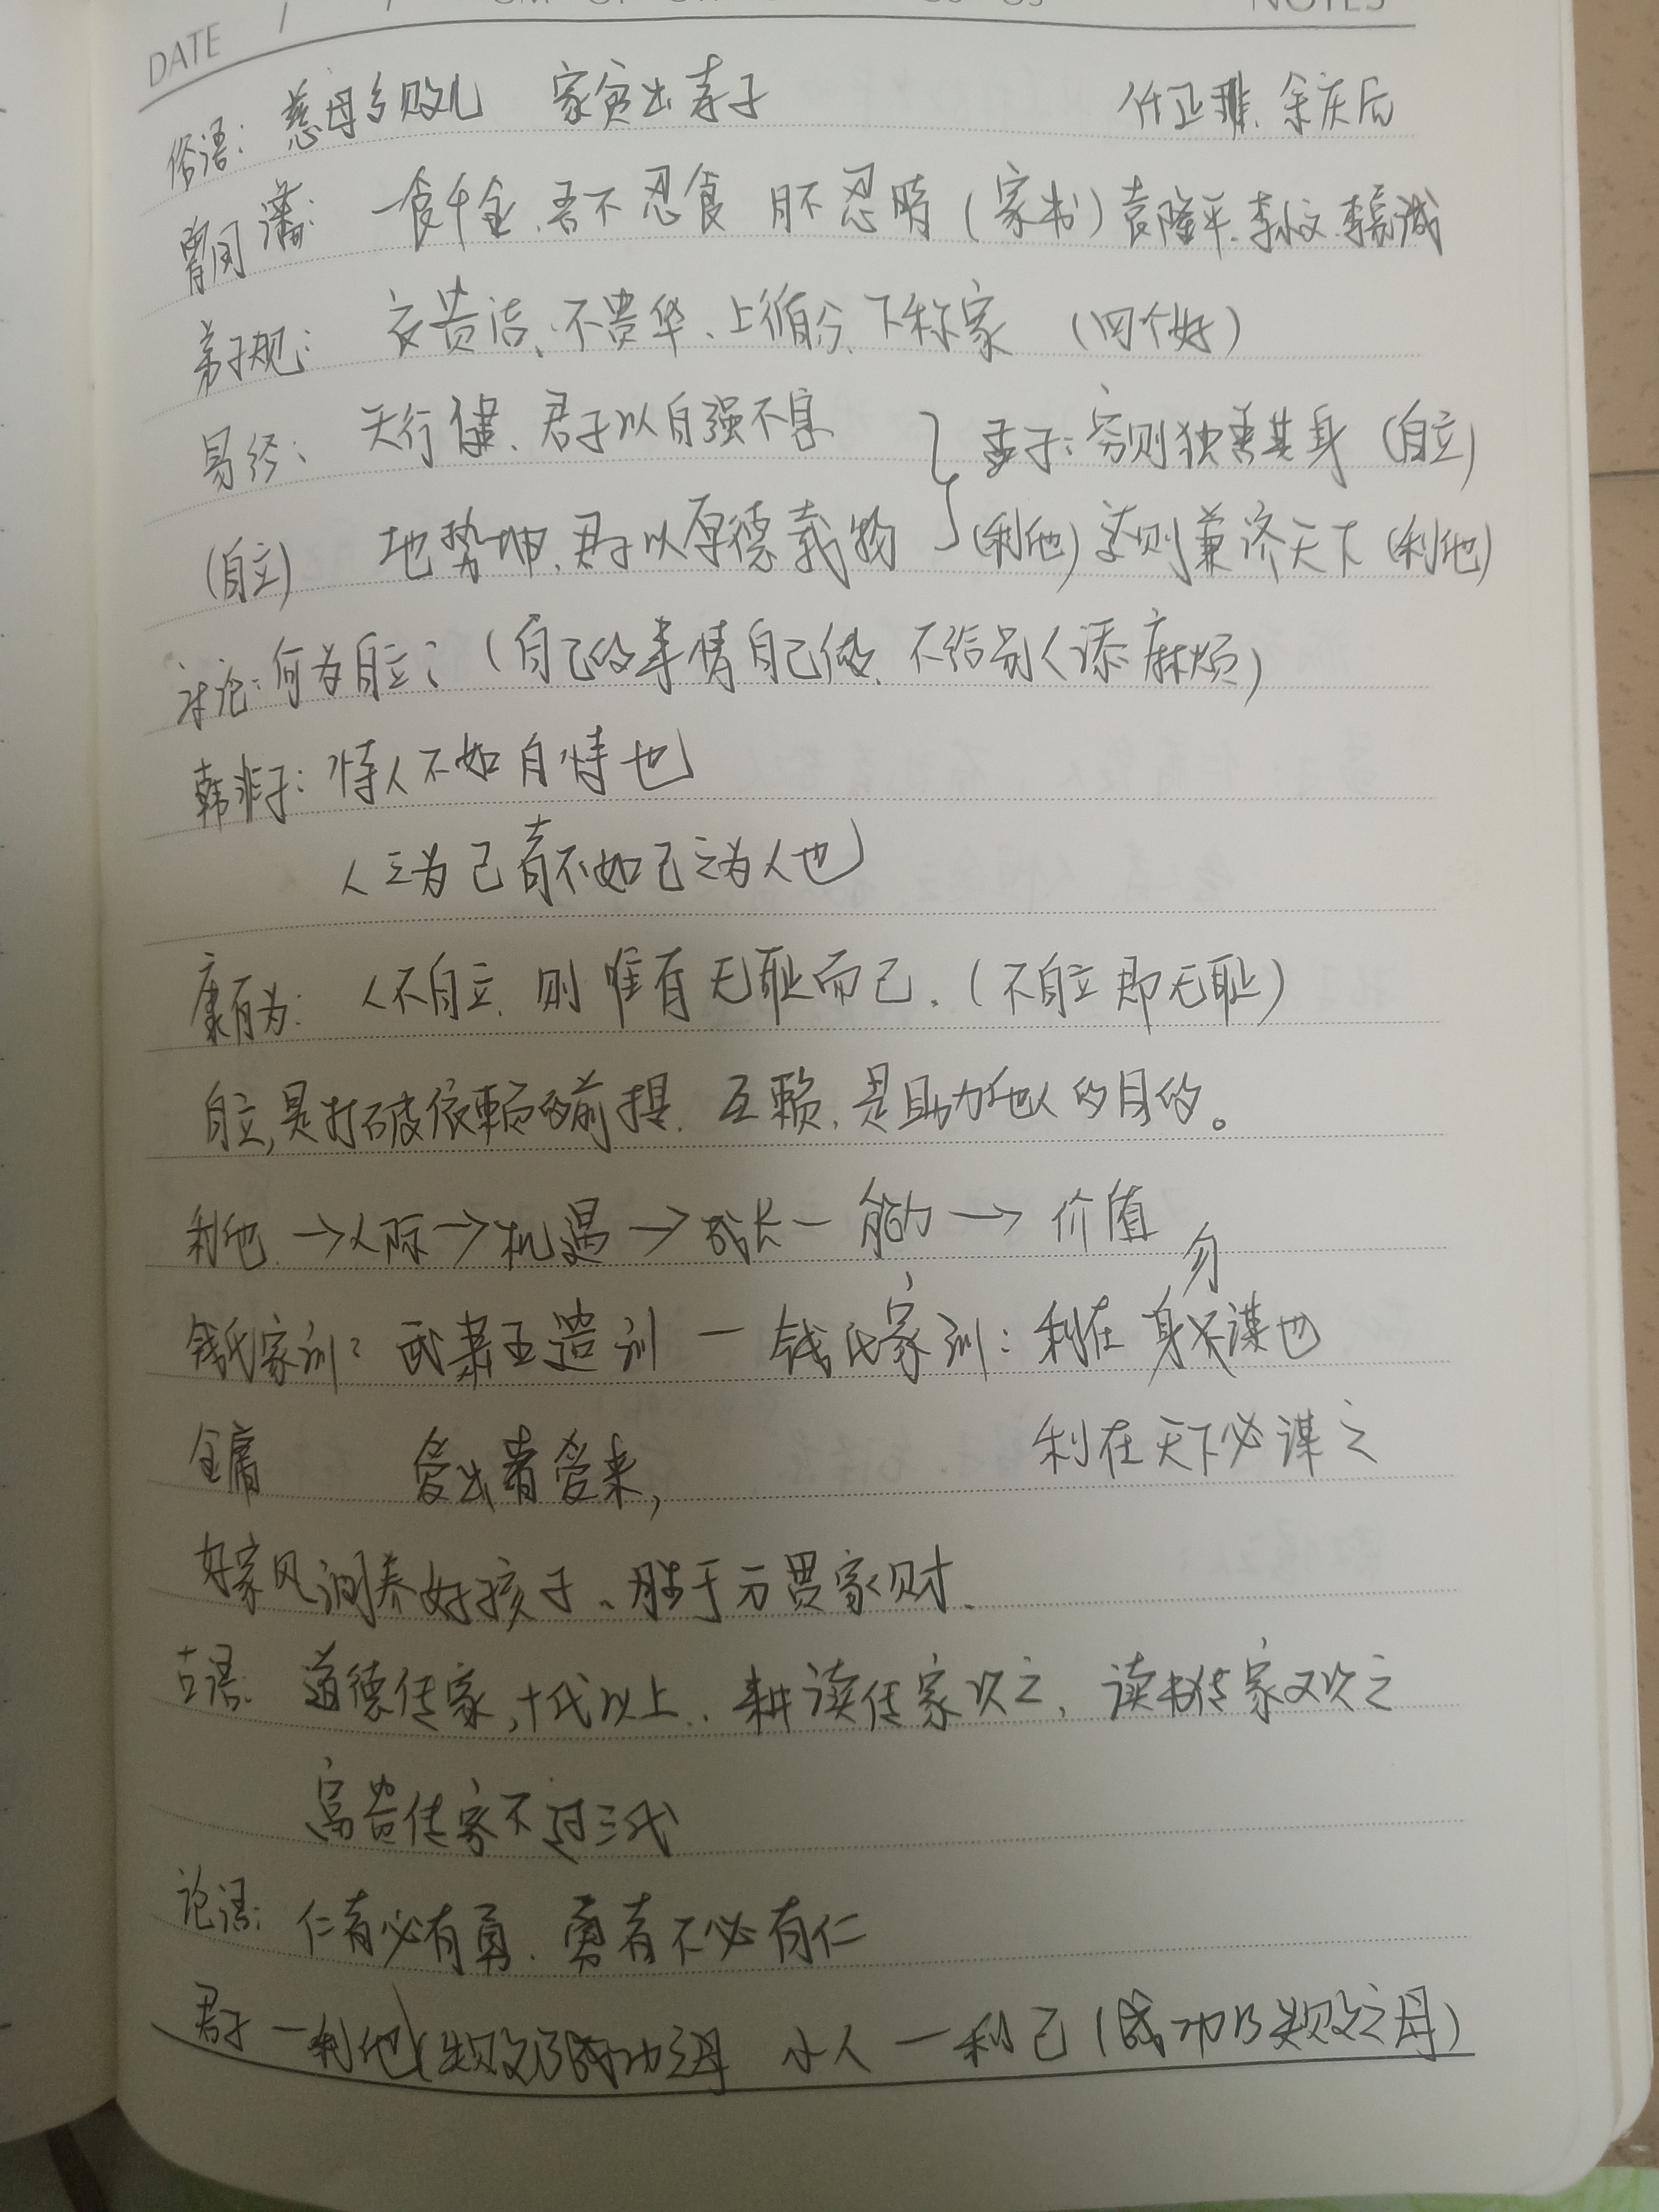 DATE / / NOTES
俗语: 慈母多败儿 家贫出孝子 任正非、余庆后
曾国藩: 一食千金、吾不忍食 目不忍睹 (家书) 袁隆平、李小文、李嘉诚
弟子规: 衣贵洁、不贵华、上循分、下称家 (四个好)
易经: 天行健、君子以自强不息 } 孟子: 穷则独善其身 (自立)
(自立) 地势坤、君子以厚德载物 (利他) 达则兼济天下 (利他)
讨论: 何为自立? (自己的事情自己做、不给别人添麻烦)
韩非子: 恃人不如自恃也
人之为己者不如己之为人也
康有为: 人不自立、则唯有无耻而已。(不自立即无耻)
自立,是打破依赖的前提、互赖,是助力他人的目的。
利他 → 人际 → 机遇 → 成长 — 能力 → 价值
钱氏家训: 武肃王遗训 — 钱氏家训: 利在身勿谋也
金庸 爱出者爱来, 利在天下必谋之
好家风润养好孩子、胜于万贯家财、
古语: 道德传家,十代以上、耕读传家次之,读书传家又次之
富贵传家不过三代
论语: 仁者必有勇、勇者不必有仁
君子 — 利他 (失败乃成功之母 小人 — 利己 (成功乃失败之母)